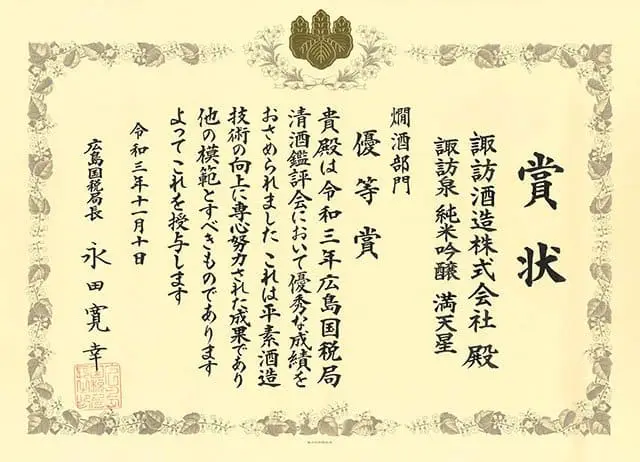 賞状
諏訪酒造株式会社 殿
諏訪泉 純米吟醸 満天星
燗酒部門
優等賞
貴殿は令和三年広島国税局
清酒鑑評会において優秀な成績を
おさめられました これは平素酒造
技術の向上に専心努力された成果であり
他の模範とすべきものであります
よって これを授与します
令和三年十一月十日
広島国税局長 永田寛幸